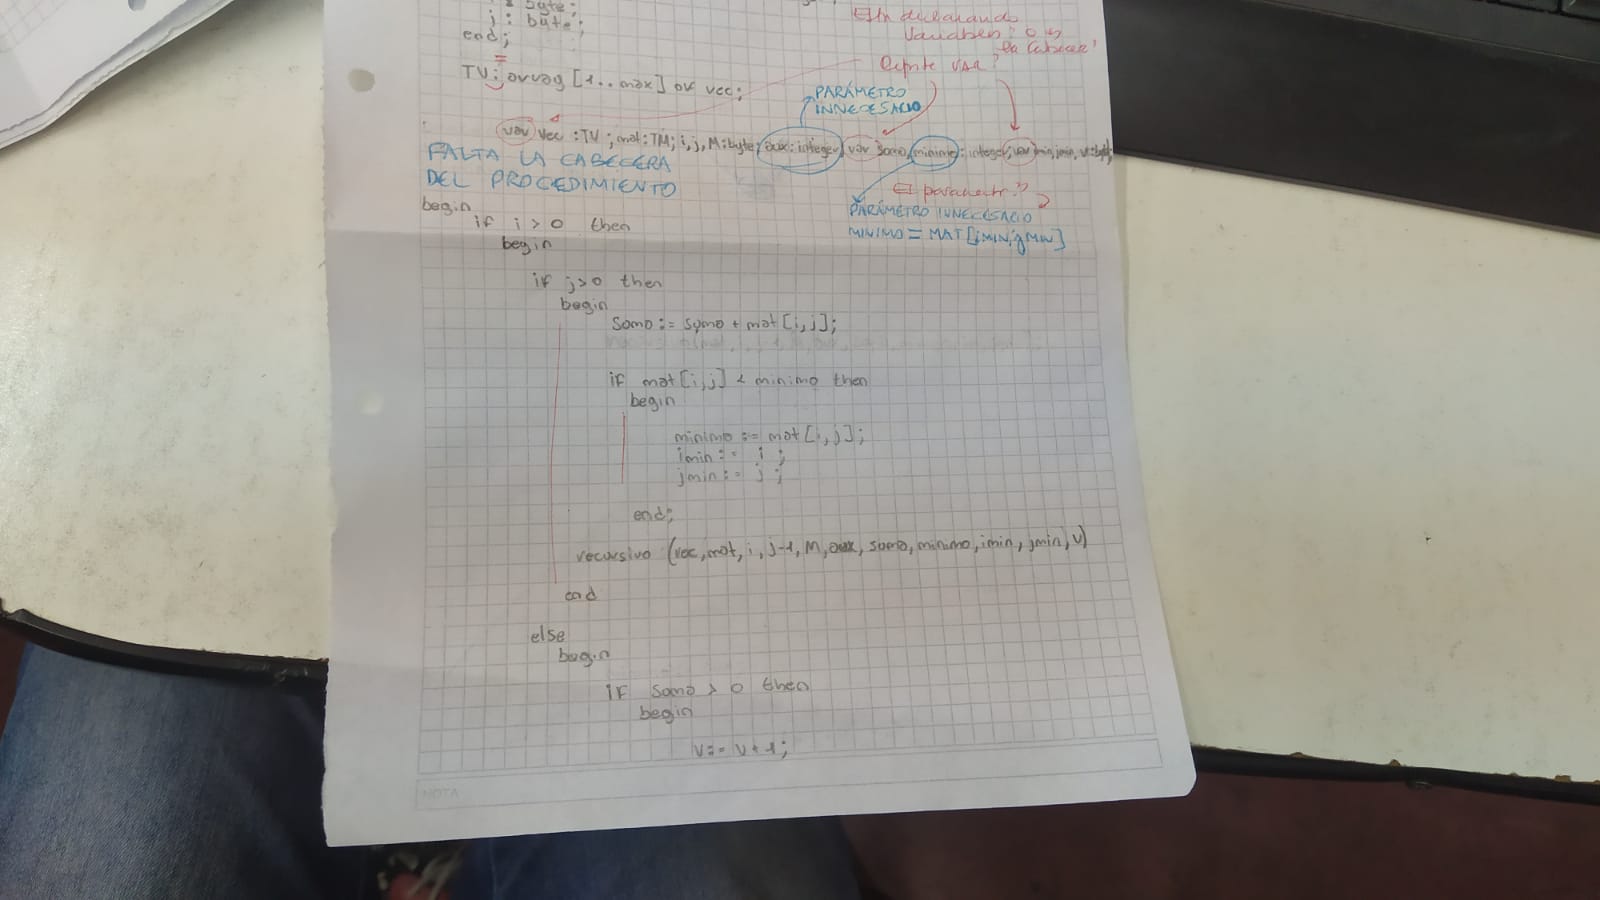 : byte;
j : byte;
end;
TV: array [1..max] of vec;
Están declarando
variables? o es
la cabecera?
Repite VAR?
PARÁMETRO
INNECESARIO
var vec :TV ; mat: TM; i, j, M: byte; aux: integer; var soma, minimo: integer; var imin, jmin, v: byte;
FALTA LA CABECERA
DEL PROCEDIMIENTO
PARÁMETRO INNECESARIO
MINIMO = MAT[iMIN, jMIN]
begin
if i > 0 then
begin
if j>0 then
begin
soma := soma + mat [i,j];
if mat [i,j] < minimo then
begin
minimo := mat [i,j];
imin := i ;
jmin := j ;
end;
recursivo (vec, mat, i, j-1, M, aux, soma, minimo, imin, jmin, v)
end
else
begin
if soma > 0 then
begin
v := v + 1;
NOTA